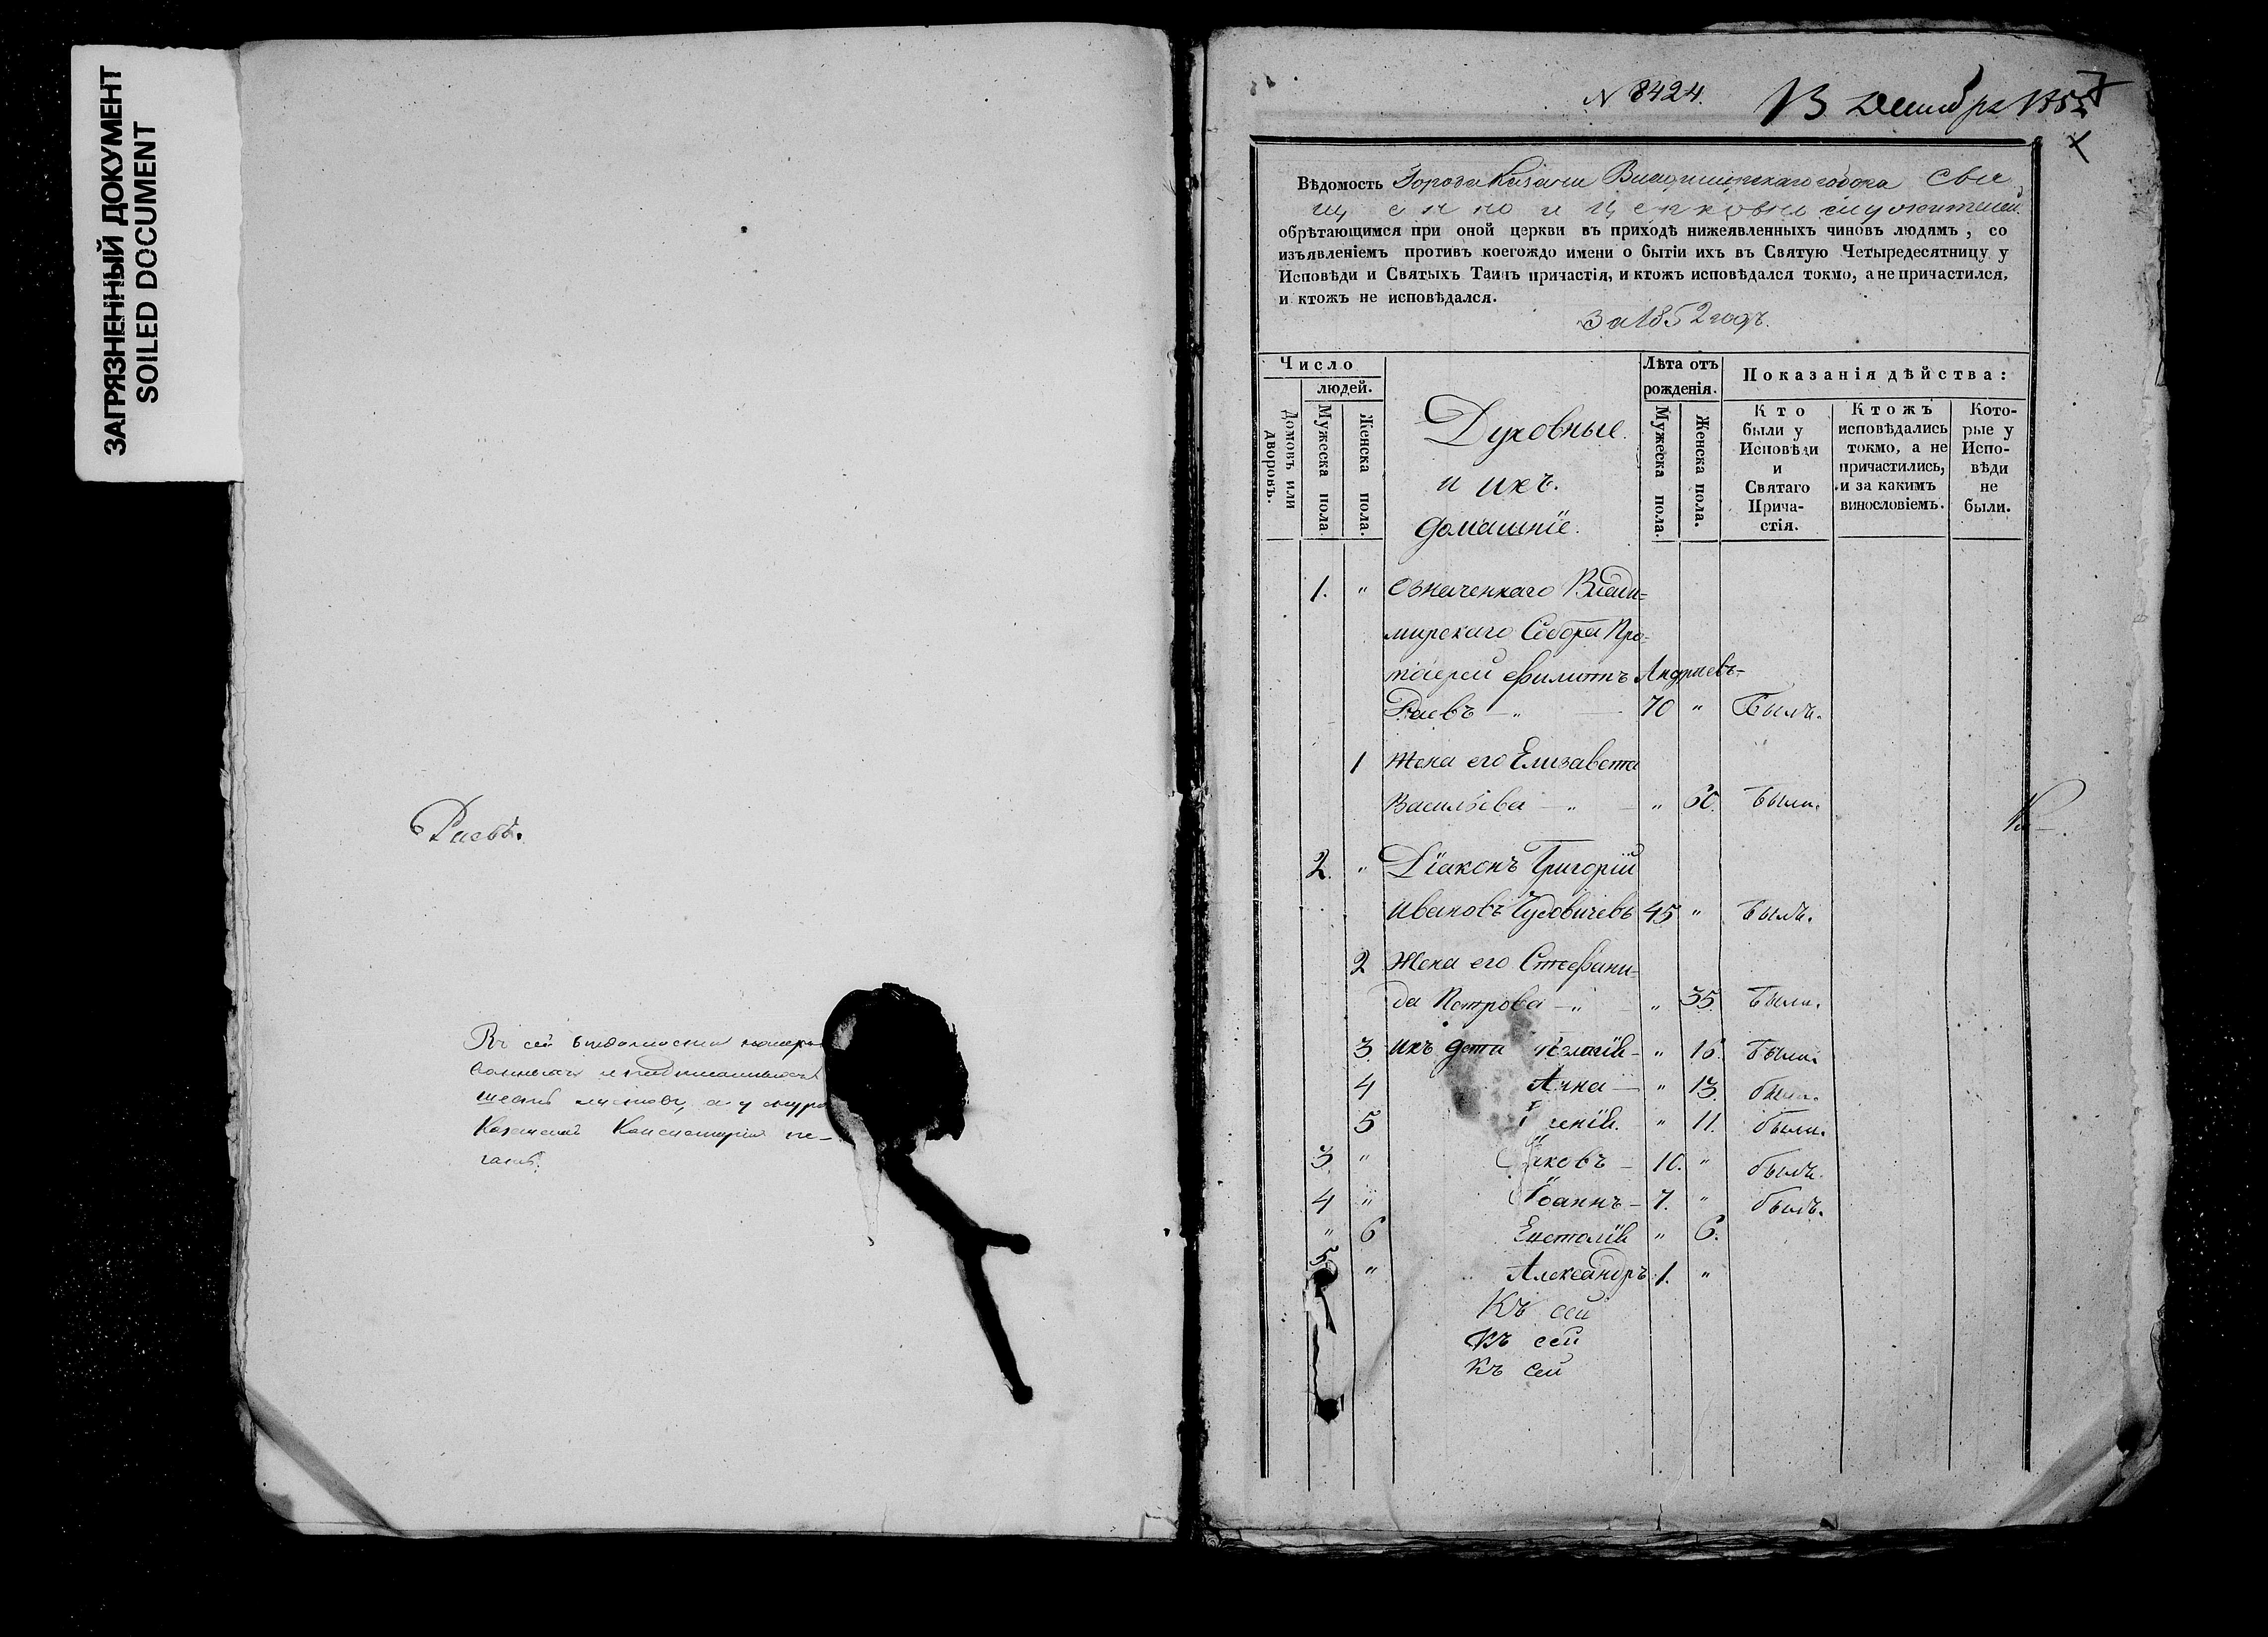 ЗАГРЯЗНЕННЫЙ ДОКУМЕНТ
SOILED DOCUMENT
Раевъ.
Въ сей ведомости
листовъ, а у шнура
Казанской Консисторіи пе-
чать.
N 8424.
13 Декабря 185
Вѣдомость Города Казани Владимирскаго собора Свя
щенно и церковно служителей
обрѣтающимся при оной церкви въ приходѣ нижеявленныхъ чиновъ людямъ, со
изъявленіемъ противъ коегождо имени о бытіи ихъ въ Святую Четыредесятницу у
Исповѣди и Святыхъ Таинъ причастія, и ктожъ исповѣдался токмо, а не причастился,
и ктожъ не исповѣдался.
За 1852 годъ.
Число
людей.
Домовъ или дворовъ.
Мужеска пола.
Женска пола.
Духовные
и ихъ
домашніе.
Лѣта отъ
рожденія.
Мужеска пола.
Женска пола.
Показанія дѣйства:
Кто
были у
Исповѣди
и
Святаго
Прича-
стія.
Ктожъ
исповѣдались
токмо, а не
причастились,
и за какимъ
винословіемъ.
Кото-
рые у
Испо-
вѣди
не
были.
1. " Означеннаго Влади=
мирскаго Собора Про-
тоіерей Филиппъ Андреевъ
Раевъ — " 70 " Былъ.
1 Жена его Елизавета
Васильева — " " 60. Была.
2. " Діаконъ Григорій
Ивановъ 45 " Былъ.
2 Жена его Стефани=
да Петрова — " " 35. Была.
3 Ихъ дети " 16. Была.
4 Анна — " 13. была.
5 " 11. была.
3. " Яковъ — 10. " былъ.
4 " Іоаннъ — 7. " былъ.
" 6 " 6.
5 " Александръ 1. "
Къ сей
Къ сей
Къ сей